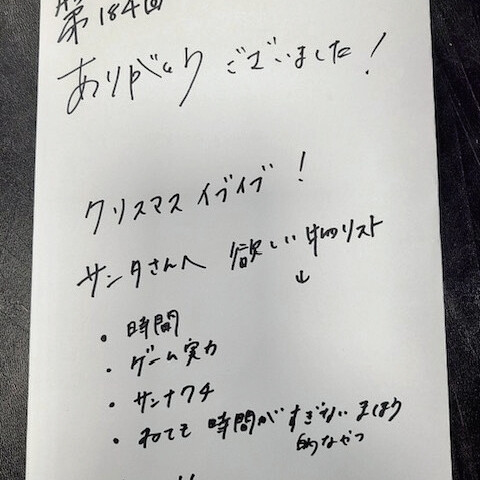 第184回
ありがとうございました!
クリスマスイブイブ!
サンタさんへ 欲しい物リスト
↓
・時間
・ゲーム実力
・サンナナチ
・ねても 時間が すぎない まほう
的なやつ